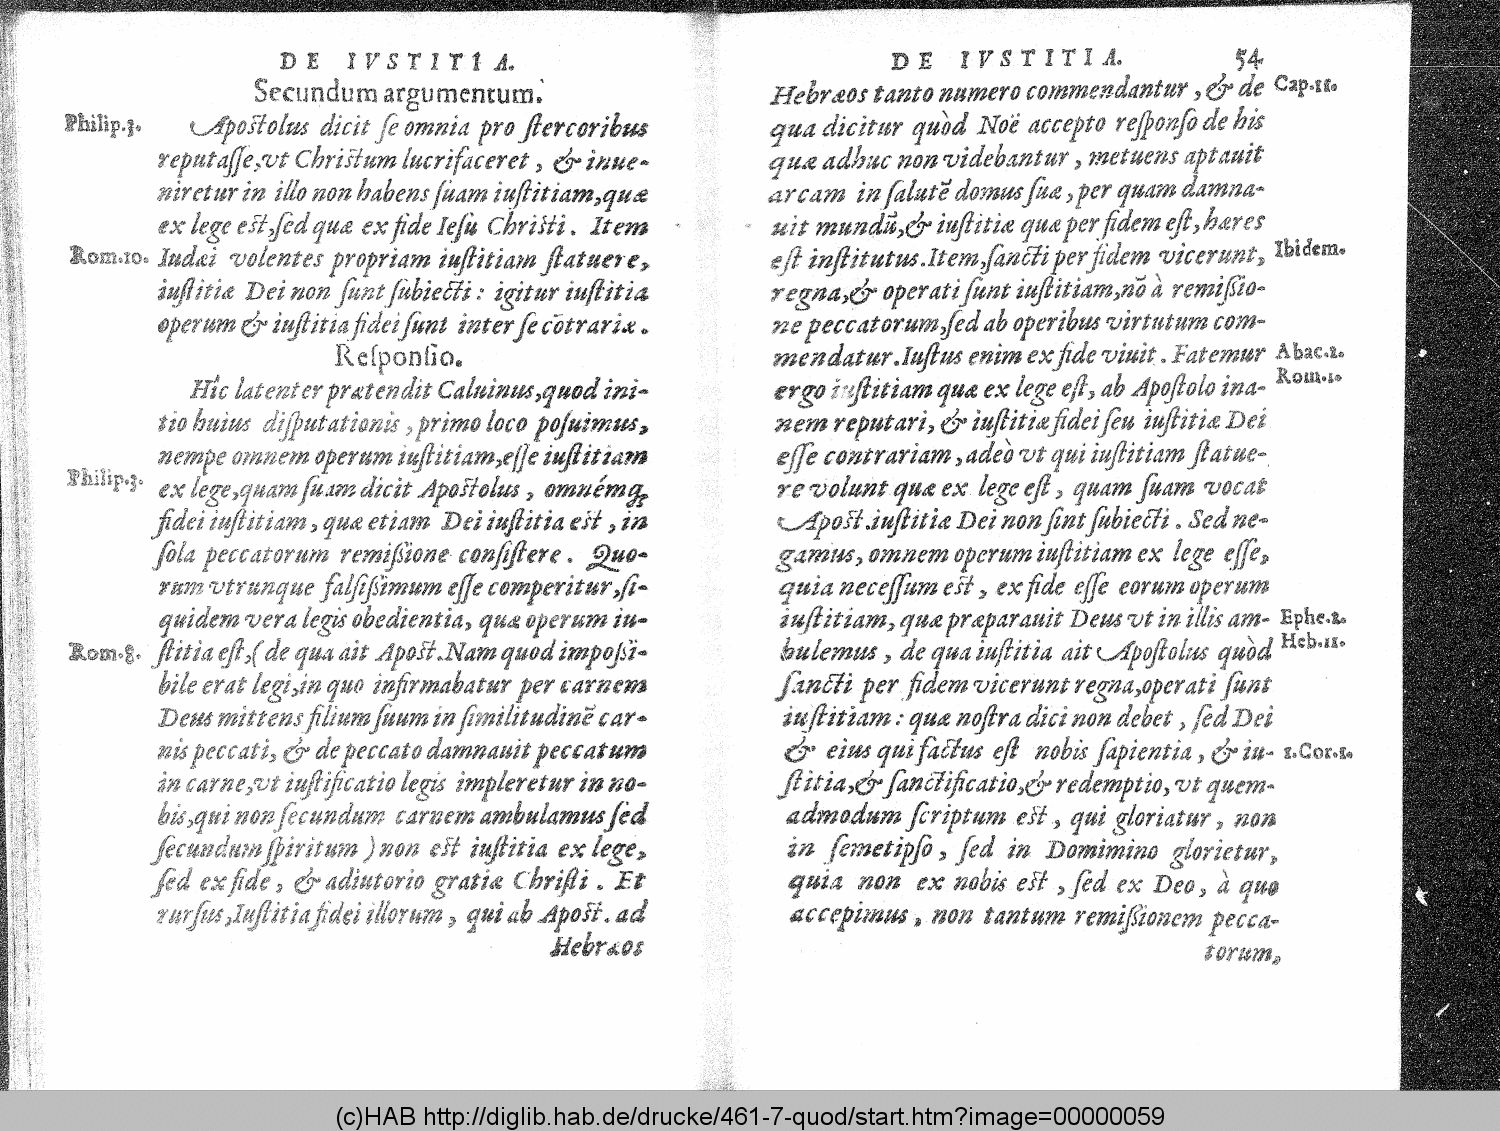 DE IVSTITIA.
Secundum argumentum.
Philip.3.
Apostolus dicit se omnia pro stercoribus
reputasse,vt Christum lucrifaceret, & inue-
niretur in illo non habens suam iustitiam,quæ
ex lege est,sed quæ ex fide Iesu Christi. Item
Rom.10.
Iudæi volentes propriam iustitiam statuere,
iustitiæ Dei non sunt subiecti: igitur iustitia
operum & iustitia fidei sunt inter se cōtrariæ.
Responsio.
Hîc latenter prætendit Caluinus,quod ini-
tio huius disputationis, primo loco posuimus,
nempe omnem operum iustitiam,esse iustitiam
Philip.3.
ex lege,quam suam dicit Apostolus, omnémq;
fidei iustitiam, quæ etiam Dei iustitia est, in
sola peccatorum remißione consistere. Quo-
rum vtrunque falsißimum esse comperitur,si-
quidem vera legis obedientia, quæ operum iu-
Rom.8.
stitia est,(de qua ait Apost.Nam quod impoßi-
bile erat legi,in quo infirmabatur per carnem
Deus mittens filium suum in similitudinē car-
nis peccati, & de peccato damnauit peccatum
in carne,vt iustificatio legis impleretur in no-
bis,qui non secundum carnem ambulamus sed
secundum spiritum) non est iustitia ex lege,
sed ex fide, & adiutorio gratiæ Christi. Et
rursus,Iustitia fidei illorum, qui ab Apost. ad
Hebræos
DE IVSTITIA. 54
Hebræos tanto numero commendantur, & de
Cap.11.
qua dicitur quòd Noë accepto responso de his
quæ adhuc non videbantur, metuens aptauit
arcam in salutē domus suæ, per quam damna-
uit mundū,& iustitiæ quæ per fidem est,hæres
est institutus.Item,sancti per fidem vicerunt,
Ibidem.
regna,& operati sunt iustitiam,nō à remißio-
ne peccatorum,sed ab operibus virtutum com-
mendatur.Iustus enim ex fide viuit. Fatemur
Abac.2.
Rom.1.
ergo iustitiam quæ ex lege est, ab Apostolo ina-
nem reputari, & iustitiæ fidei seu iustitiæ Dei
esse contrariam, adeò vt qui iustitiam statue-
re volunt quæ ex lege est, quam suam vocat
Apost.iustitiæ Dei non sint subiecti. Sed ne-
gamus, omnem operum iustitiam ex lege esse,
quia necessum est, ex fide esse eorum operum
iustitiam, quæ præparauit Deus vt in illis am-
Ephe.2.
bulemus, de qua iustitia ait Apostolus quòd
Heb.11.
sancti per fidem vicerunt regna,operati sunt
iustitiam: quæ nostra dici non debet, sed Dei
& eius qui factus est nobis sapientia, & iu-
1.Cor.1.
stitia,& sanctificatio,& redemptio, vt quem-
admodum scriptum est, qui gloriatur, non
in semetipso, sed in Domimino glorietur,
quia non ex nobis est, sed ex Deo, à quo
accepimus, non tantum remißionem pecca-
torum,
(c)HAB http://diglib.hab.de/drucke/461-7-quod/start.htm?image=00000059